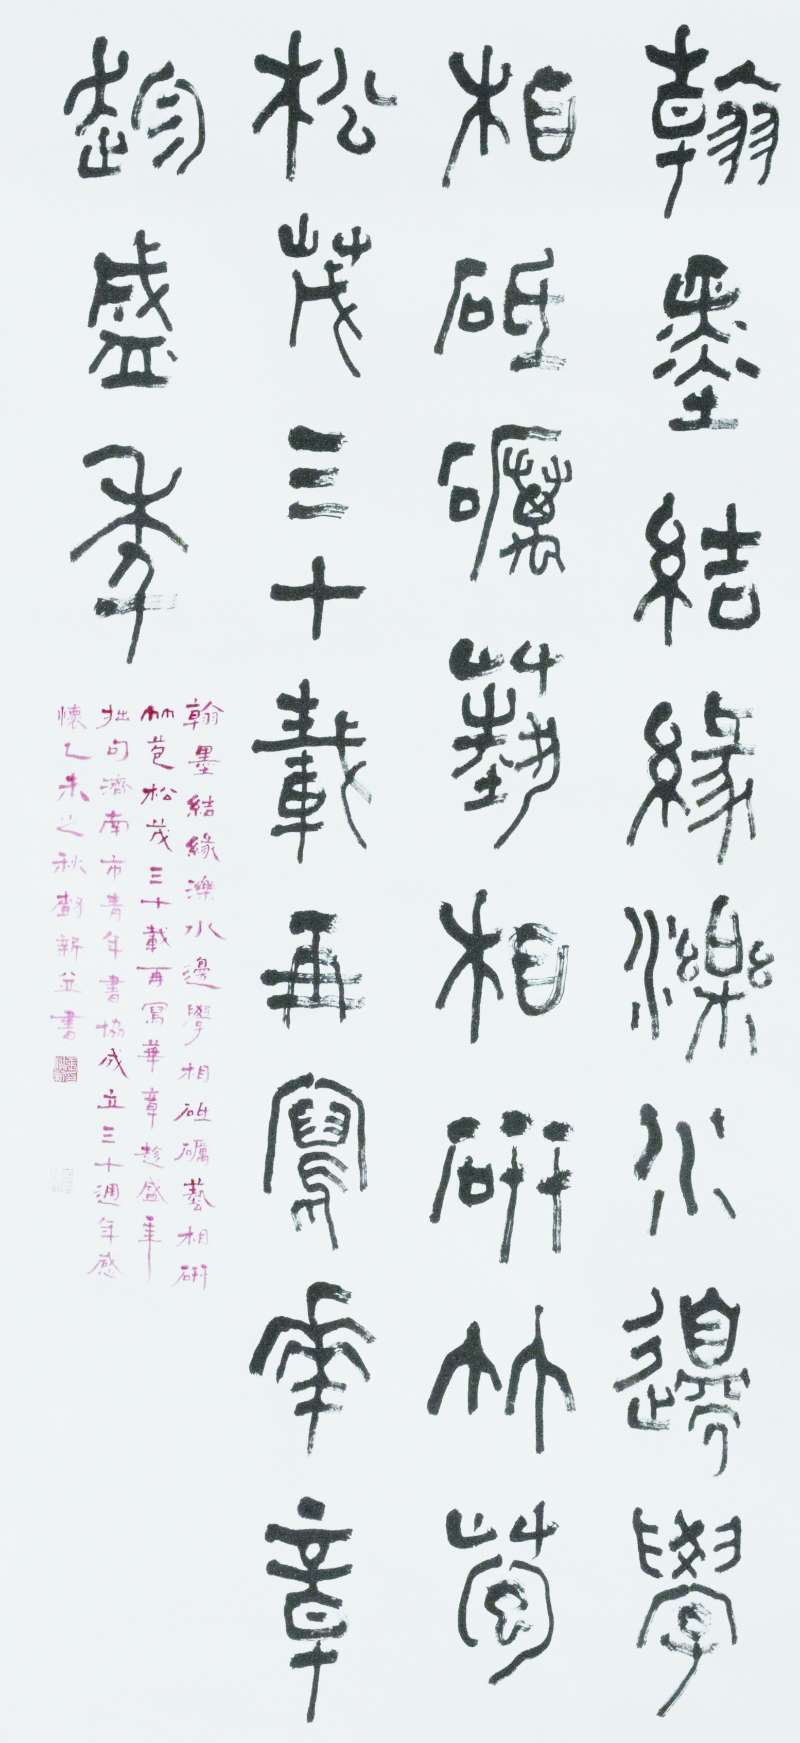 翰墨結緣濼水邊學
相砥礪藝相研竹苞
松茂三十載再寫華章
趁盛年
翰墨結緣濼水邊學相砥礪藝相研
竹苞松茂三十載再寫華章趁盛年
拙句濟南市青年書協成立三十週年感
懷乙未之秋 新並書